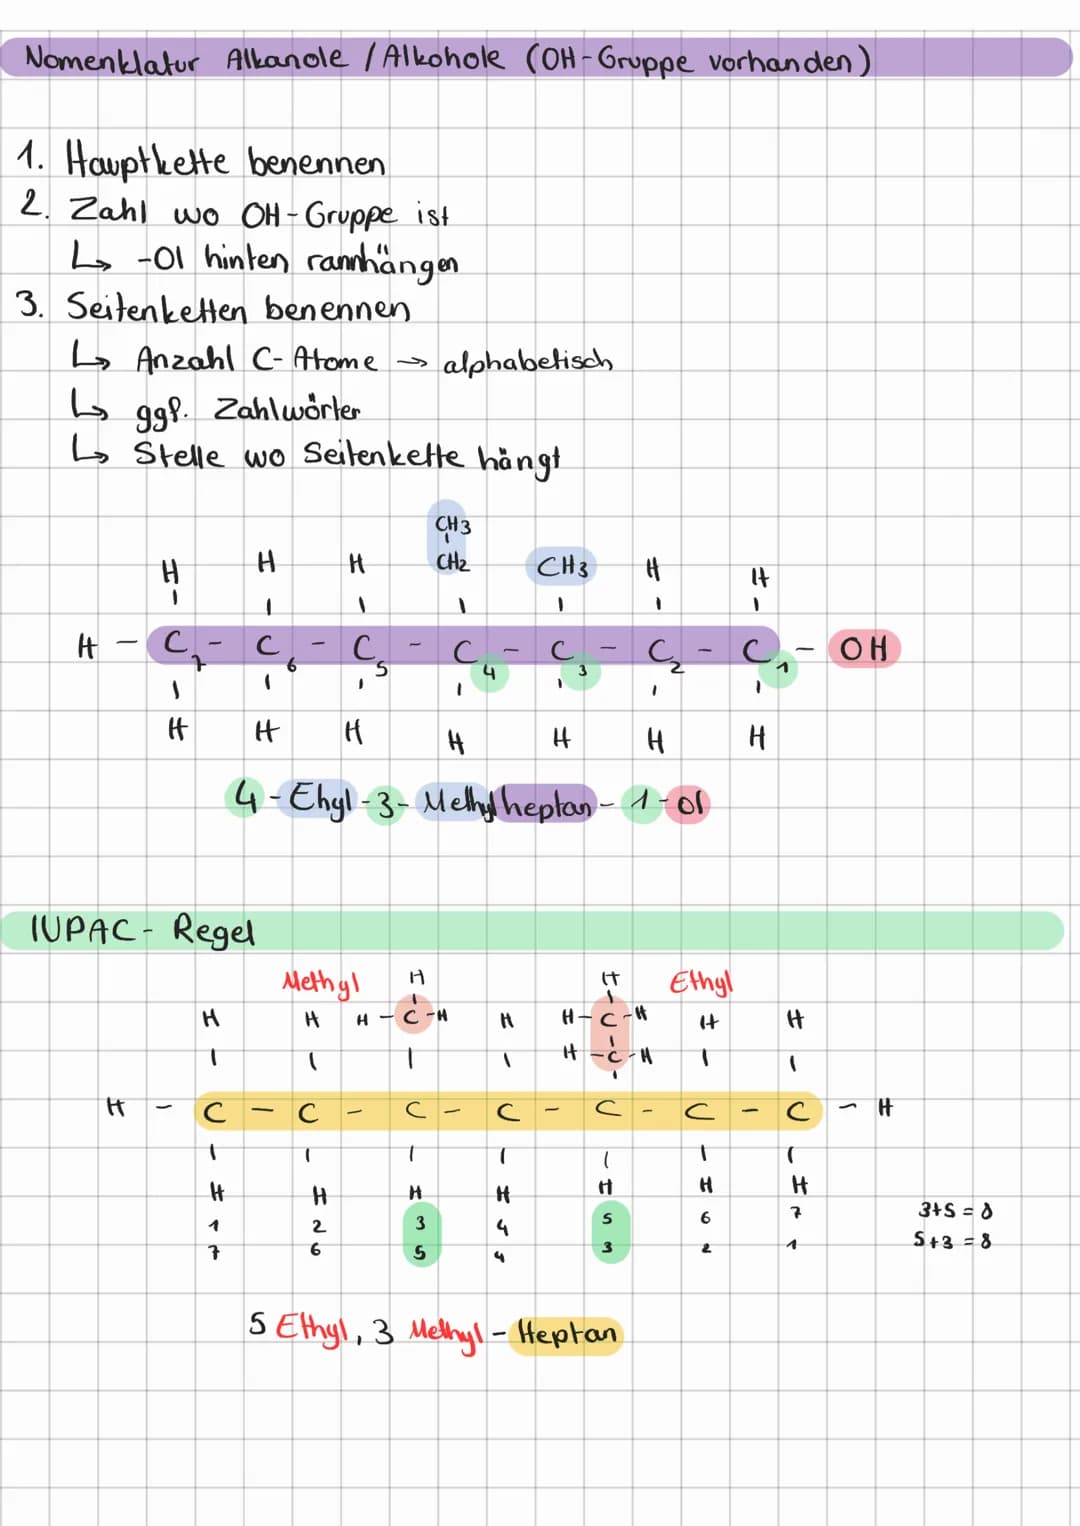 Nomenklatur Alkanole / Alkohole (OH-Gruppe vorhanden)
1. Hauptkette benennen
2. Zahl wo OH-Gruppe ist
↳ -Ol hinten rannhängen
3. Seitenketten benennen
↳ Anzahl C-Atome → alphabetisch
↳ ggf. Zahlwörter
↳ Stelle wo Seitenkette hängt
CH3
H H H CH2 CH3 H H
H - C7 - C6 - C5 - C4 - C3 - C2 - C1 - OH
H H H H H H H
4-Ehyl-3-Methylheptan-1-ol
IUPAC- Regel
Methyl H H Ethyl
H H H-C-H H H-C-H H H
H-C-H
H - C - C - C - C - C - C - C - H
H H H H H H H
1 2 3 4 5 6 7 3+5 = 8
7 6 5 4 3 2 1 5+3 = 8
5 Ethyl, 3 Methyl - Heptan